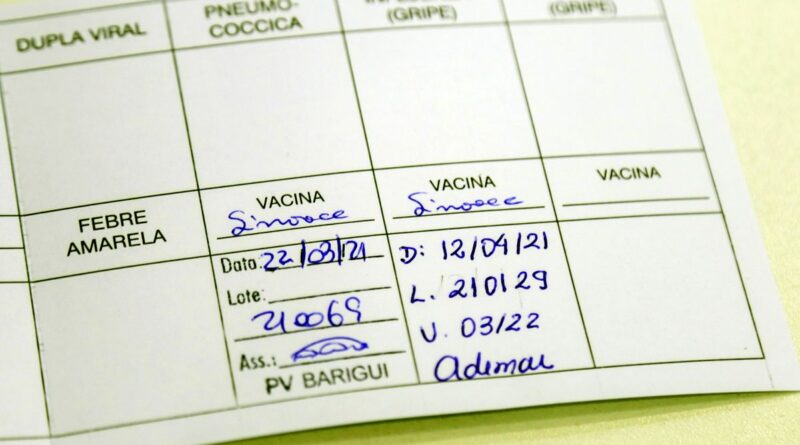 DUPLA VIRAL
PNEUMO-
COCCICA
(GRIPE)
(GRIPE)
FEBRE
AMARELA
VACINA
Sinovac
Data: 22/03/21
Lote:
210069
Ass.:
PV BARIGUI
VACINA
Sinovac
D: 12/04/21
L. 210129
V. 03/22
Ademar
VACINA